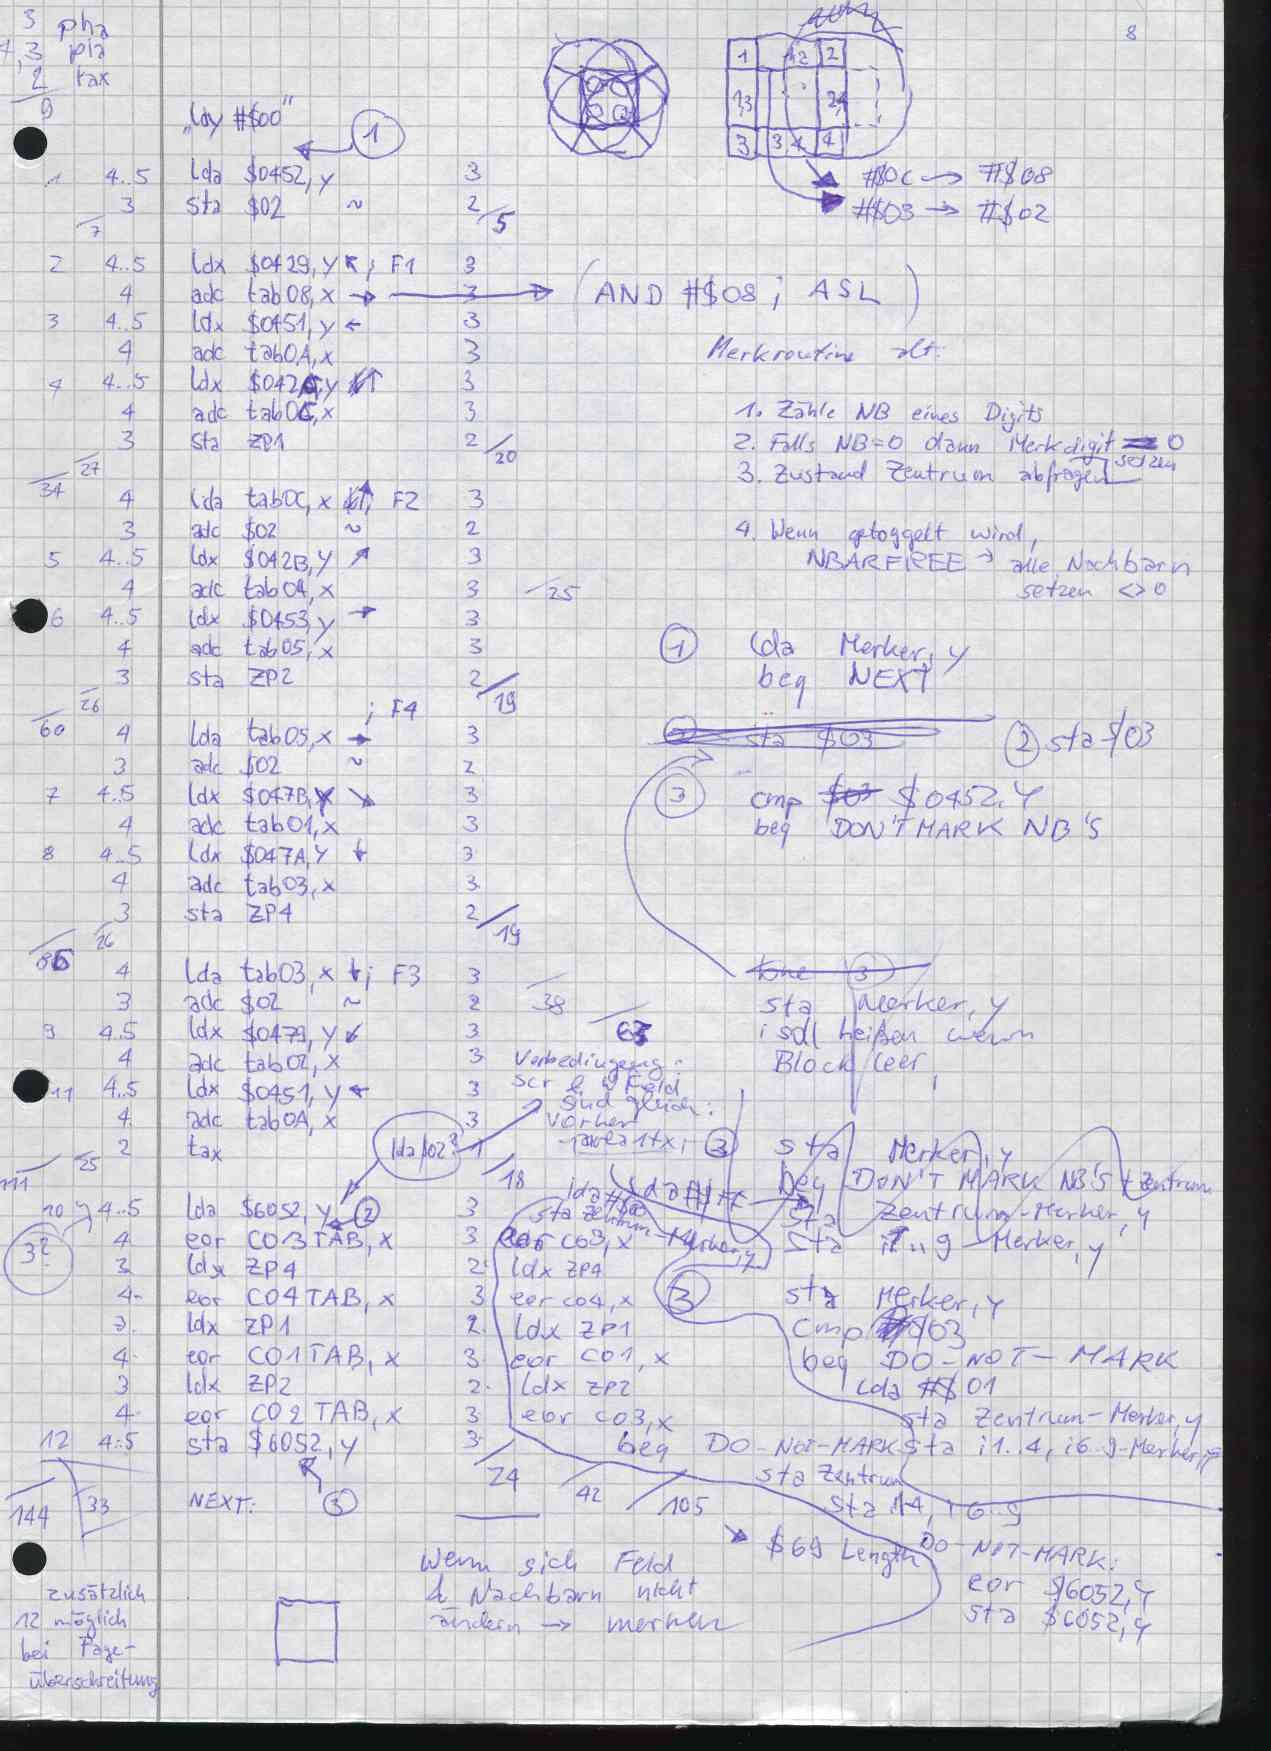 8
3 pha
4,3 pla
2 tax
9
„ldy #$00"
1
1 4..5 lda $0452,y 3
3 sta $02 ~ 2
7
5
2 4..5 ldx $0429,y ; F1 3
4 adc tab08,x → 3 (AND #$08 ; ASL)
3 4..5 ldx $0451,y ← 3
4 adc tab0A,x 3
4 4..5 ldx $042A,y 3
4 adc tab0C,x 3
3 sta ZP1 2
27
34
20
4 lda tab0C,x ; F2 3
3 adc $02 ~ 2
5 4..5 ldx $042B,y 3
4 adc tab04,x 3
25
6 4..5 ldx $0453,y → 3
4 adc tab05,x 3
3 sta ZP2 2
26
60
19
; F4
4 lda tab05,x → 3
3 adc $02 ~ 2
7 4..5 ldx $047B,y ↘ 3
4 adc tab01,x 3
8 4..5 ldx $047A,y ↓ 3
4 adc tab03,x 3
3 sta ZP4 2
26
86
19
4 lda tab03,x ↓; F3 3
3 adc $02 ~ 2
38
9 4..5 ldx $0479,y ↙ 3
63
4 adc tab02,x 3
11 4..5 ldx $0451,y ← 3
4 adc tab0A,x 3
2 tax 1
lda $02?
25
111
18
10 4..5 lda $6052,y 2 3
3?
4 eor C03TAB,x 3
3 ldx ZP4 2
4 eor C04TAB,x 3
3 ldx ZP1 2
4 eor C01TAB,x 3
3 ldx ZP2 2
4 eor C02TAB,x 3
12 4..5 sta $6052,y 3
24
42
105
33
144
NEXT: 3
zusätzlich
12 möglich
bei Page-
überschreitung
1 12 2
1,3 2,4
3 34 4
#$0C → #$08
#$03 → #$02
Merkroutine alt:
1. Zähle NB eines Digits
2. Falls NB=0 dann Merkdigit 0
setzen
3. Zustand Zentrum abfragen
4. Wenn getoggelt wird,
NBARFREE → alle Nachbarn
setzen <>0
1 lda Merker,y
beq NEXT
sta $03
2 sta $03
3 cmp $03 $0452,y
beq DON'T MARK NB'S
3
sta Merker,y
; soll heißen wenn
Block leer
Vorbedingung:
Scr & Feld
sind gleich:
vorher
3 sta Merker,y
beq DON'T MARK NB'S + Zentrum
sta Zentrum-Merker,y
sta i1..9-Merker,y
sta Zentrum-Merker,y
eor C03,x
ldx ZP4
eor C04,x
ldx ZP1
eor C01,x
ldx ZP2
eor C03,x
beq DO-NOT-MARK
sta Zentrum
sta 1-4, i6..9
3 sta Merker,y
cmp $03
beq DO-NOT-MARK
lda #$01
sta Zentrum-Merker,y
sta i1..4, i6..9-Merker,y
$69 Length
DO-NOT-MARK:
eor $6052,y
sta $6052,y
Wenn sich Feld
& Nachbarn nicht
ändern → merken